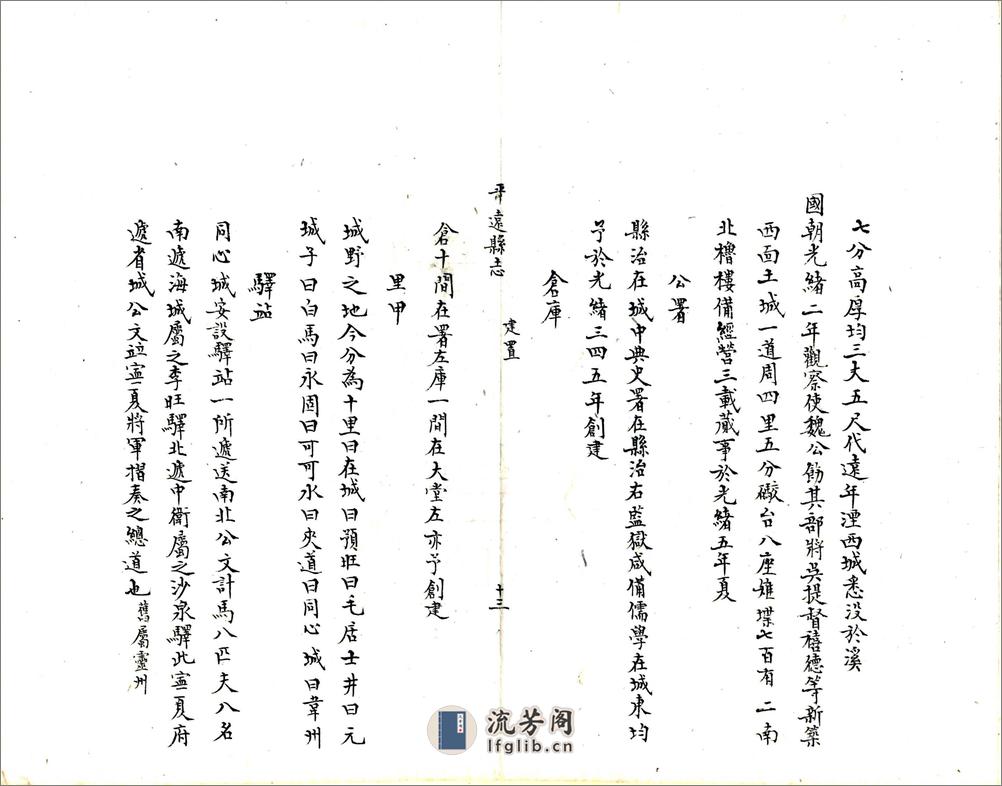 七分高厚均三丈五尺代遠年湮西城悉没於溪
國朝光緒二年觀察使魏公飭其部將吳提督禧德等新築
西面土城一道周四里五分礮台八座雉堞七百有二南
北櫓樓備經營三載蕆事於光緒五年夏
公署
縣治在城中典史署在縣治右監獄咸備儒學在城東均
予於光緒三四五年創建
倉庫
平遠縣志
建置
十三
倉十間在署左庫一間在大堂左亦予創建
里甲
城野之地今分為十里曰在城曰預旺曰毛居士井曰元
城子曰白馬曰永固曰可可水曰夾道曰同心城曰韋州
驛站
同心城安設驛站一所遞送南北公文計馬八匹夫八名
南遞海城屬之李旺驛北遞中衛屬之沙泉驛此寧夏府
遞省城公文並寧夏將軍摺奏之總道也舊屬靈州
流芳阁
lfglib.cn